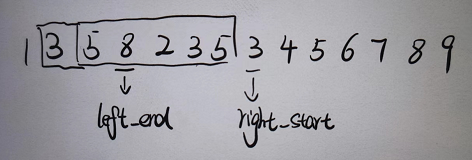 1 3 5 8 2 3 5 3 4 5 6 7 8 9
left_end right_start